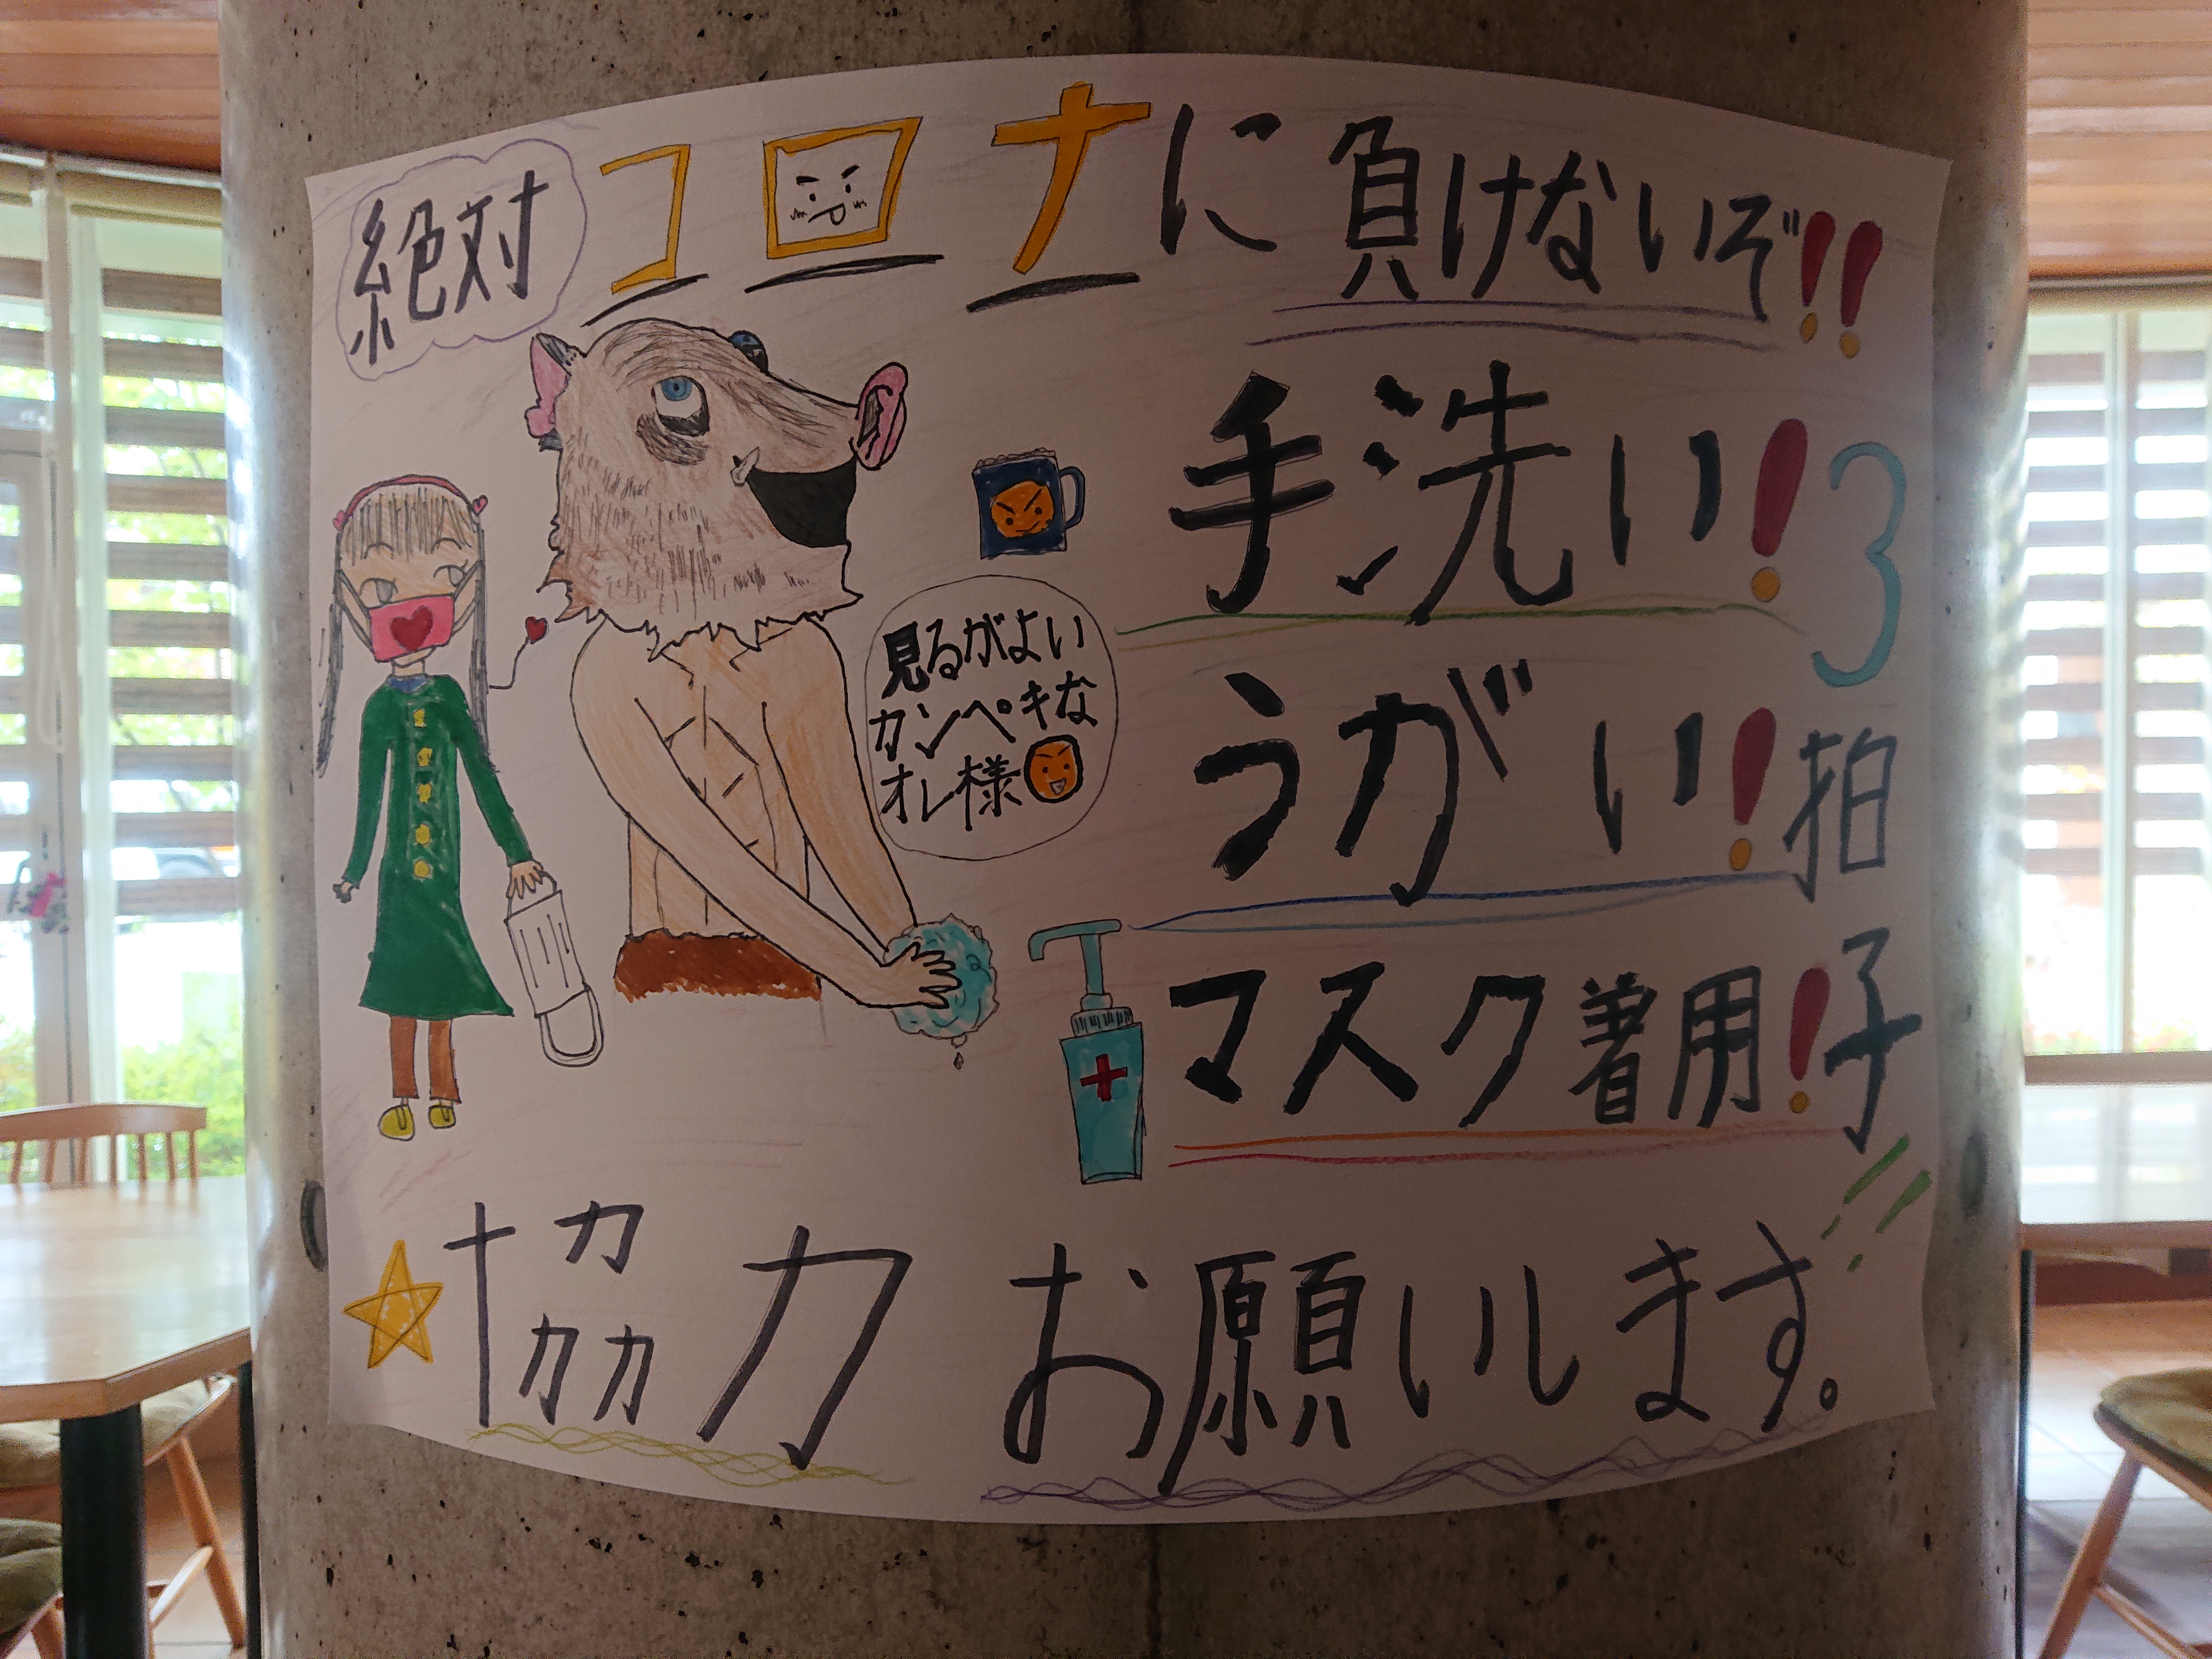 絶対コロナに負けないぞ!!
手洗い!
うがい!
マスク着用!
3拍子!!
見るがよい
カンペキな
オレ様
協力お願いします。